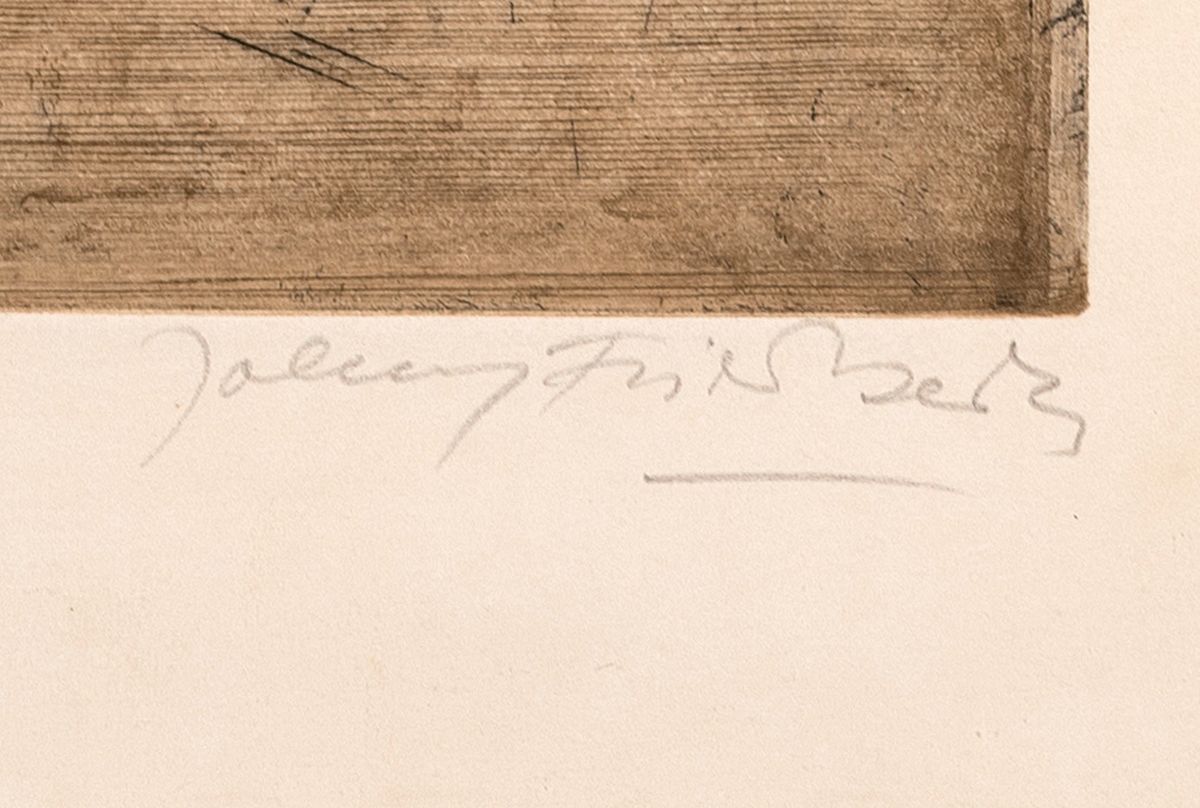 Johnny Friedlaender